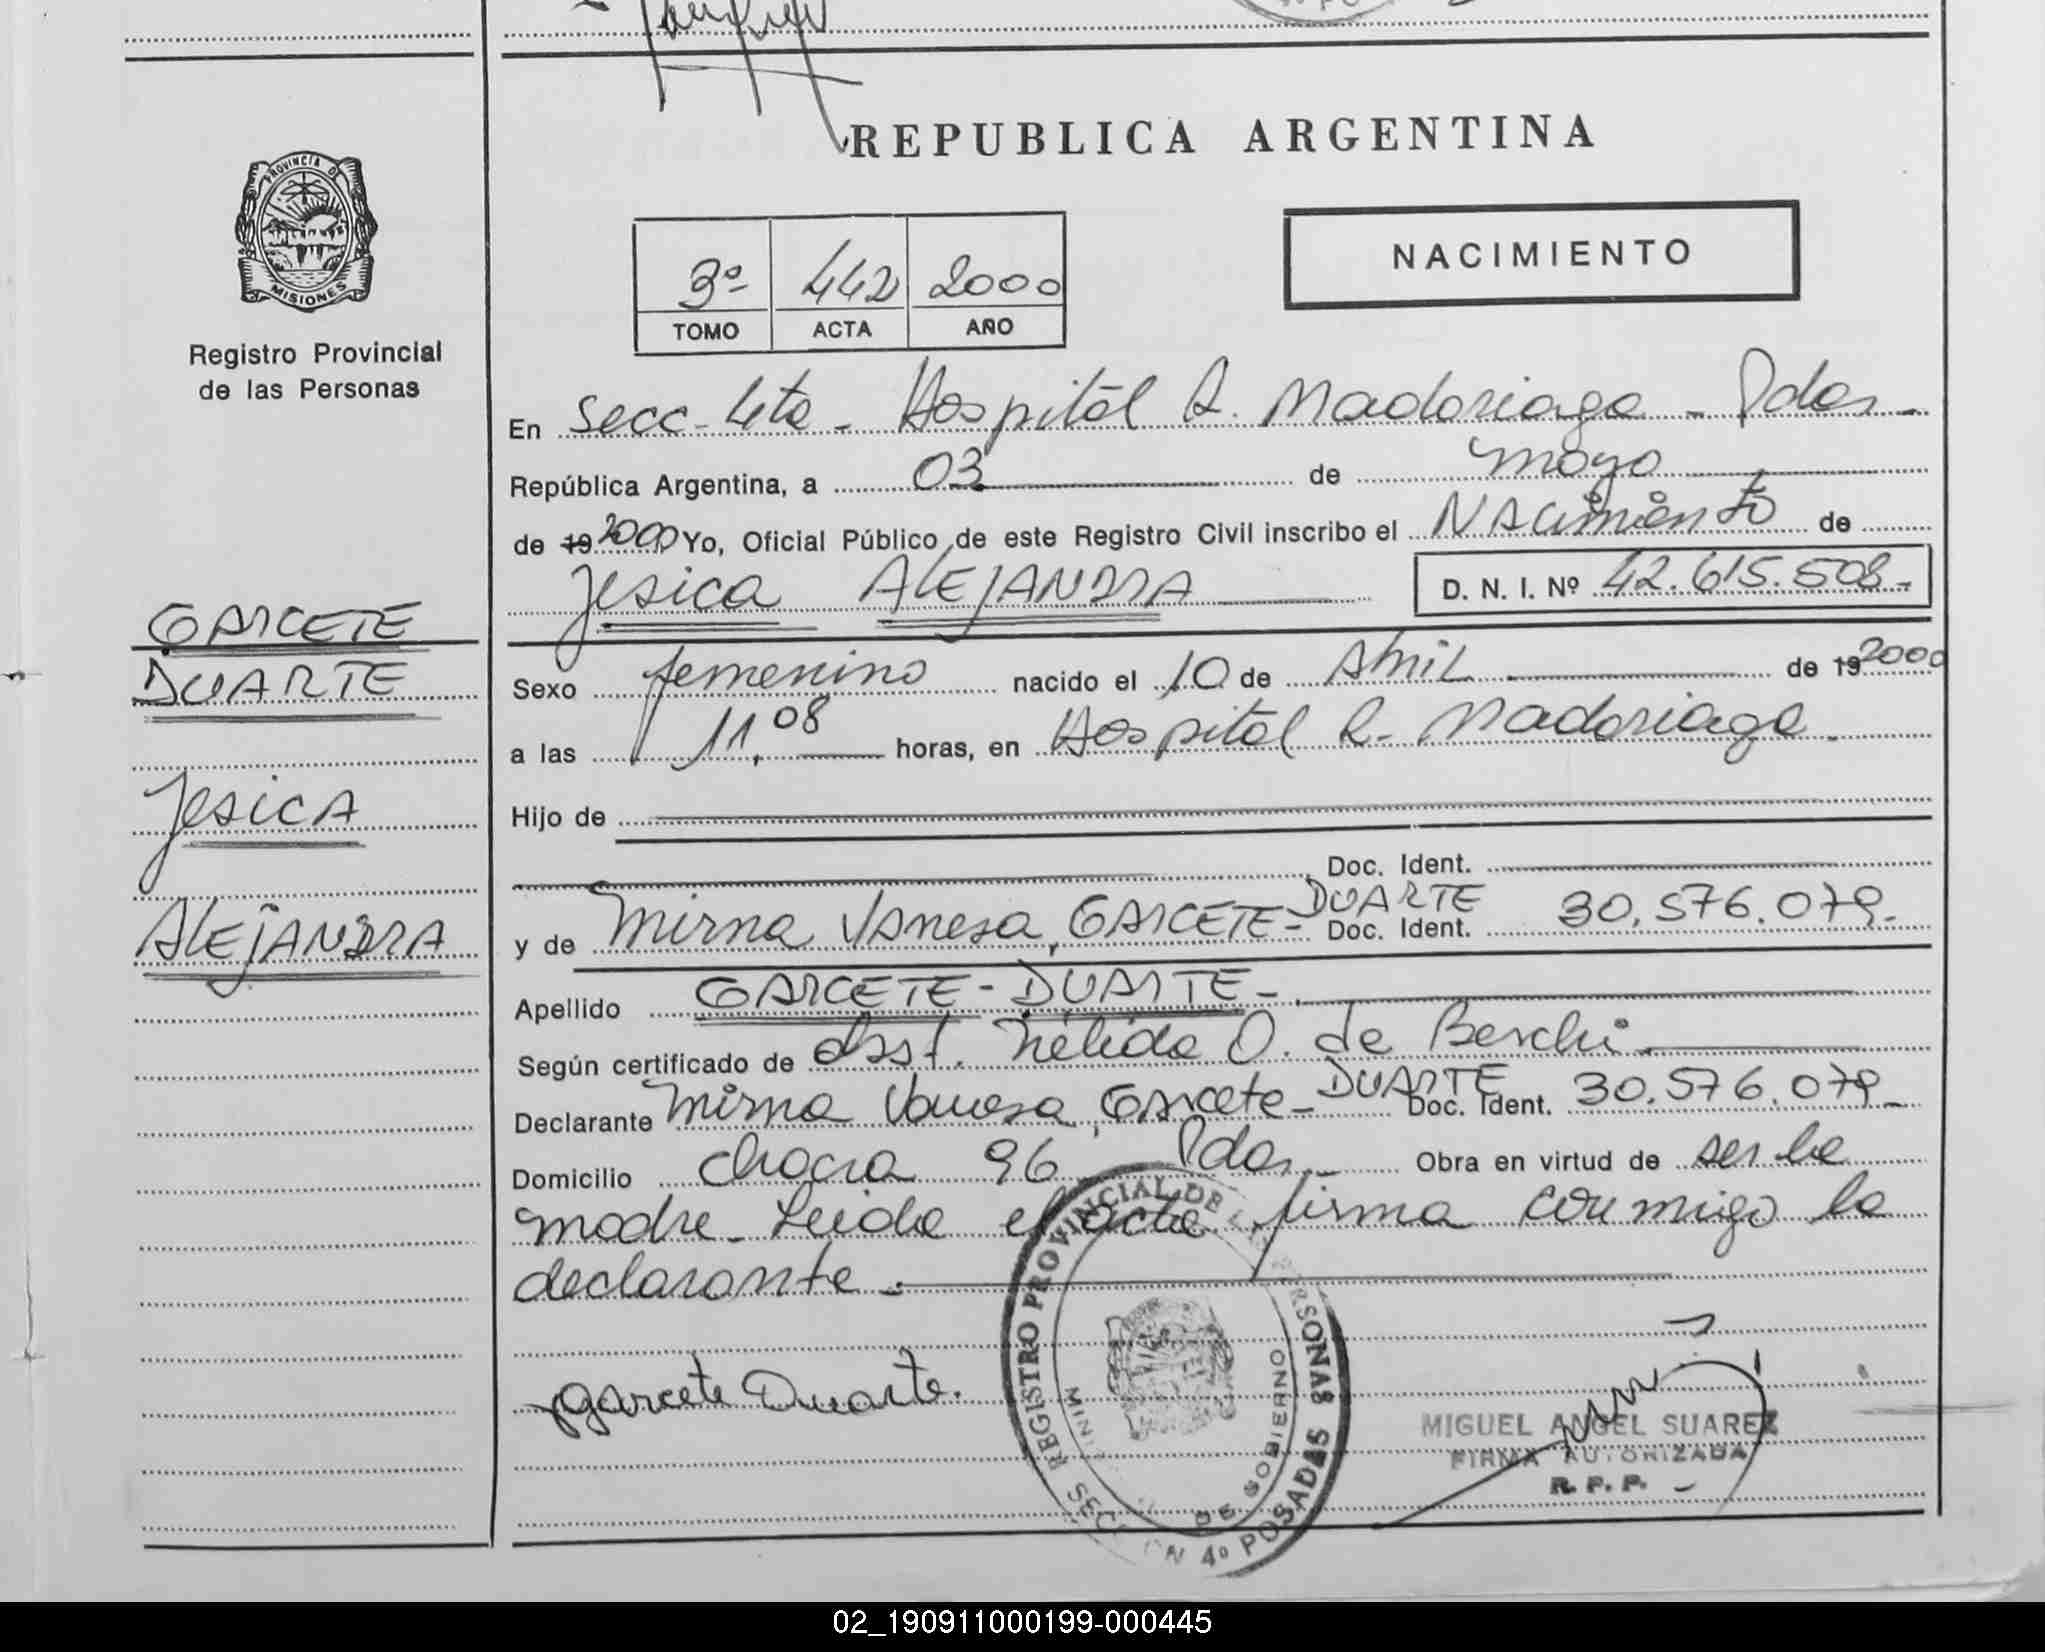 REPUBLICA ARGENTINA
PROVINCIA D
MISIONES
Registro Provincial
de las Personas
NACIMIENTO
3º 442 2000
TOMO ACTA AÑO
En Secc. 4ta. Hospital R. Madariaga - Pdas.
República Argentina, a 03 de mayo
de 19 2000 Yo, Oficial Público de este Registro Civil inscribo el Nacimiento de
Jesica ALEJANDRA D. N. I. Nº 42.615.508.-
GARCETE
DUARTE
Jesica
ALEJANDRA
Sexo femenino nacido el 10 de Abril de 19 2000
a las 11,08 horas, en Hospital R. Madariaga.
Hijo de
Doc. Ident.
y de Mirna Vanesa, GARCETE - DUARTE Doc. Ident. 30.576.079.-
Apellido GARCETE - DUARTE -.
Según certificado de Obst. Nélida O. de Berchi.
Declarante Mirna Vanesa, Garcete - DUARTE Doc. Ident. 30.576.079 -
Domicilio chacra 96 Pdas. Obra en virtud de ser la
madre. Leida el acta firma conmigo la
declarante.
Garcete Duarte.
REGISTRO PROVINCIAL DE PERSONAS
DE GOBIERNO
4º POSADAS
MIGUEL ANGEL SUAREZ
FIRMA AUTORIZADA
R. P. P.
02_190911000199-000445